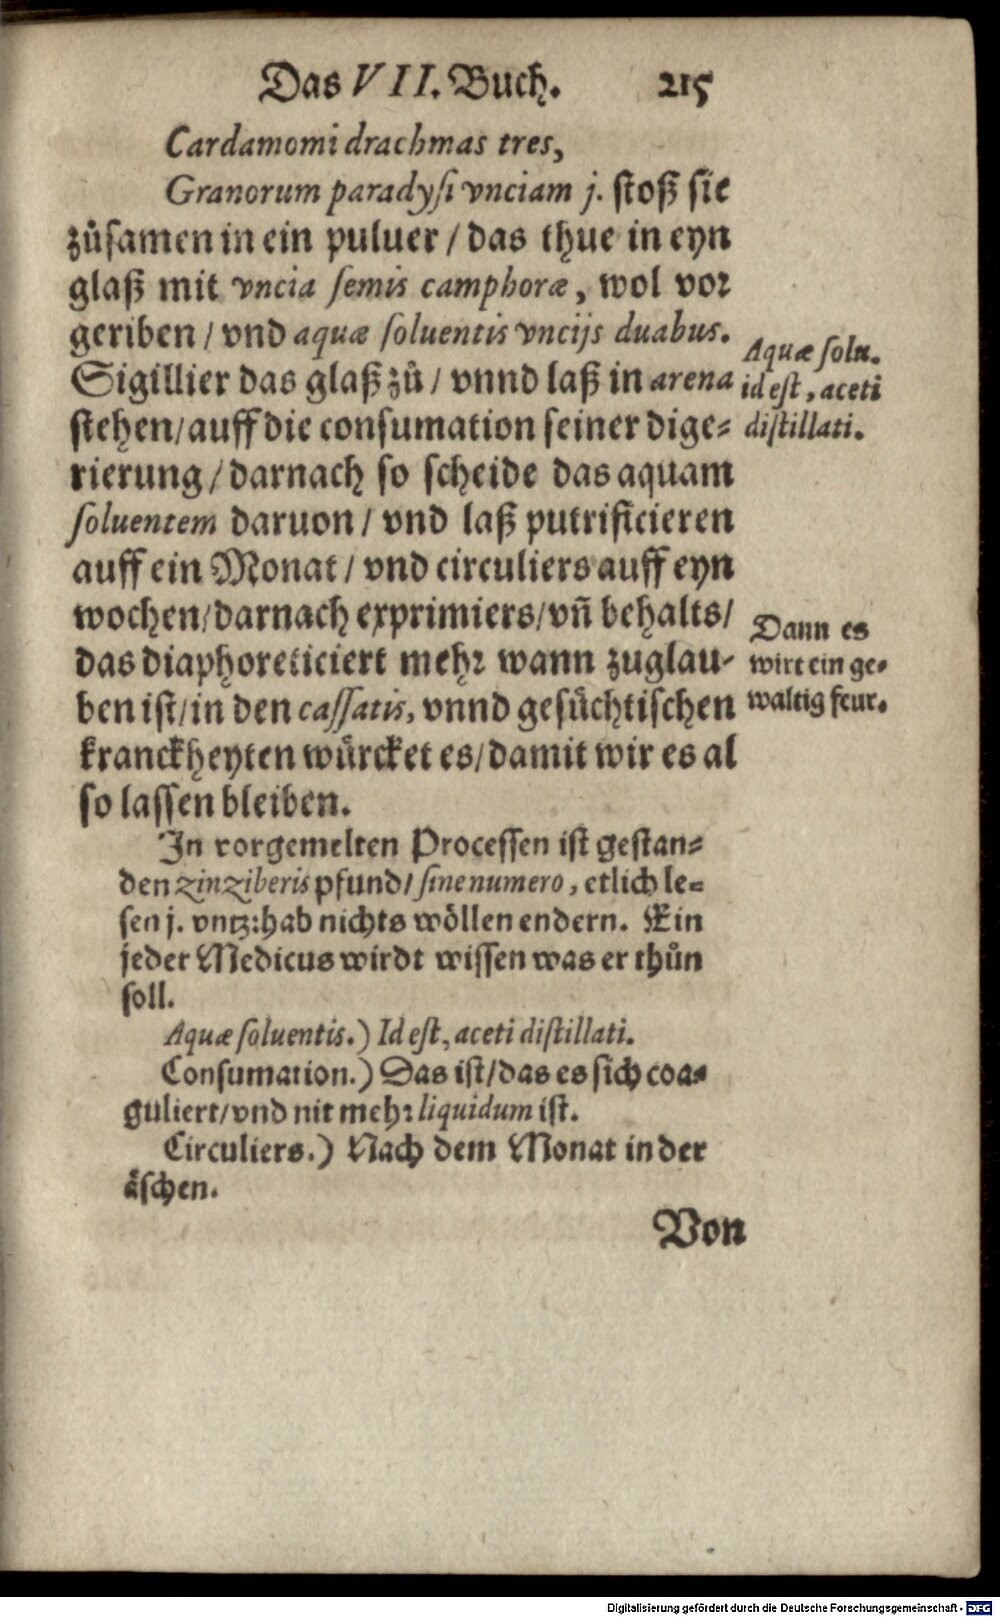 Das VII. Buch. 215
Cardamomi drachmas tres,
Granorum paradysi vnciam j. stoß sie
zůsamen in ein puluer / das thue in eyn
glaß mit vncia semis camphoræ, wol vor
geriben / vnd aquæ soluentis vncijs duabus.
Sigillier das glaß zů / vnnd laß in arena
stehen / auff die consumation seiner dige-
rierung / darnach so scheide das aquam
soluentem daruon / vnd laß putrificieren
auff ein Monat / vnd circuliers auff eyn
wochen / darnach exprimiers / vñ behalts /
das diaphoreticiert mehr wann zuglau-
ben ist / in den cassatis, vnnd gesüchtischen
kranckheyten würcket es / damit wir es al
so lassen bleiben.
Aquæ solu.
id est, aceti
distillati.
Dann es
wirt ein ge-
waltig feur.
In vorgemelten Processen ist gestan-
den zinziberis pfund / sine numero, etlich le-
sen j. vntz: hab nichts wöllen endern. Ein
jeder Medicus wirdt wissen was er thůn
soll.
Aquæ soluentis.) Id est, aceti distillati.
Consumation.) Das ist / das es sich coa-
guliert / vnd nit mehr liquidum ist.
Circuliers.) Nach dem Monat in der
äschen.
Von
Digitalisierung gefördert durch die Deutsche Forschungsgemeinschaft - DFG